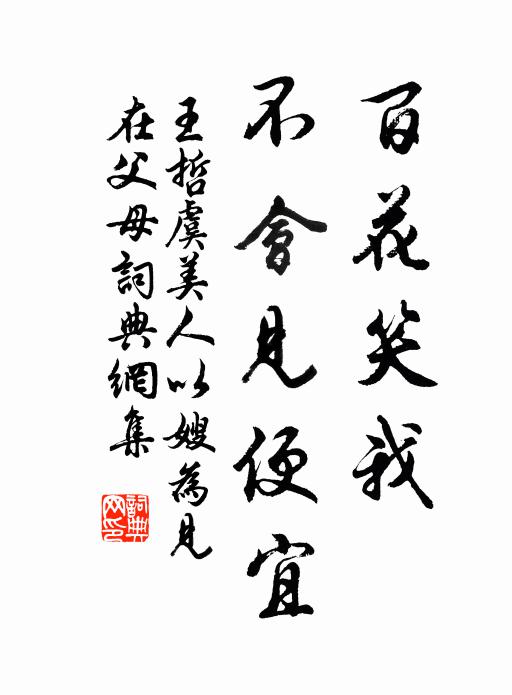 百花笑我
不會見便宜
王哲虞美人以嫂為見
在父母詞典網集
詞典
网印